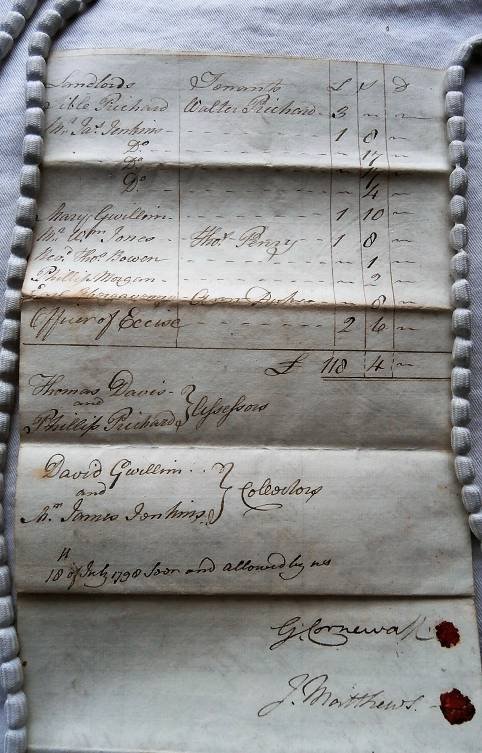 Landlords Tenants £ S D
Sible Prichard Walter Prichard 3 " "
Mr. Jas. Jenkins 1 8 "
Do. 17 "
Do. "
Do. 4 "
Mary Gwillim 1 10 "
Mr. Wm. Jones Thos. Penry 1 8 "
Revd. Thos. Bowen 1 "
Phillip Morgan 2 "
8 "
Officer of Eccise 2 6 "
£ 118 4 "
Thomas Davis
and
Phillip Prichard } Assessors
David Gwillim
and
Mr. James Jenkins } Collectors
18th of July 1798 Seen and allowed by us
G. Cornewall
J. Matthews